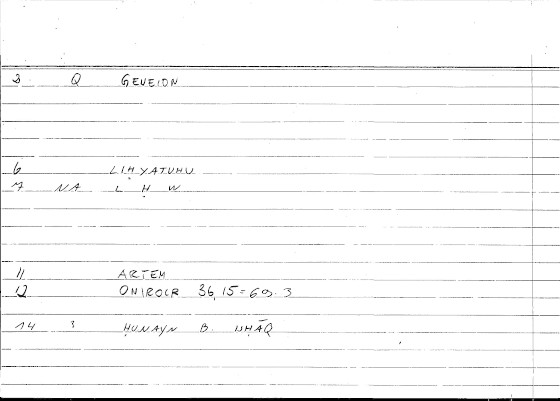 3 Q GENEION
6 LIḤYATUHU
7 NA L Ḥ W
11 ARTEM
12 ONIROCR 36,15 = 69.3
14 3 ḤUNAYN B. ISḤĀQ